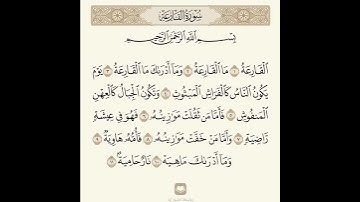 سُورَةُ القَارِعَةِ
بِسْمِ اللَّهِ الرَّحْمَٰنِ الرَّحِيمِ
الْقَارِعَةُ ١ مَا الْقَارِعَةُ ٢ وَمَا أَدْرَىٰكَ مَا الْقَارِعَةُ ٣ يَوْمَ
يَكُونُ النَّاسُ كَالْفَرَاشِ الْمَبْثُوثِ ٤ وَتَكُونُ الْجِبَالُ كَالْعِهْنِ
الْمَنفُوشِ ٥ فَأَمَّا مَن ثَقُلَتْ مَوَٰزِينُهُۥ ٦ فَهُوَ فِي عِيشَةٍ
رَّاضِيَةٍ ٧ وَأَمَّا مَنْ خَفَّتْ مَوَٰزِينُهُۥ ٨ فَأُمُّهُۥ هَاوِيَةٌ ٩
وَمَا أَدْرَىٰكَ مَا هِيَهْ ١٠ نَارٌ حَامِيَةٌ ١١